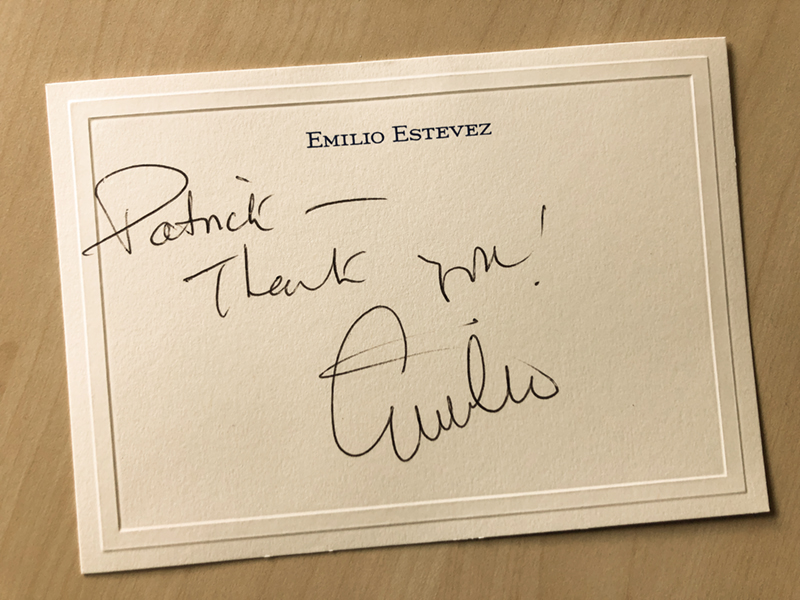 EMILIO ESTEVEZ
Patrick —
Thank you!
Emilio